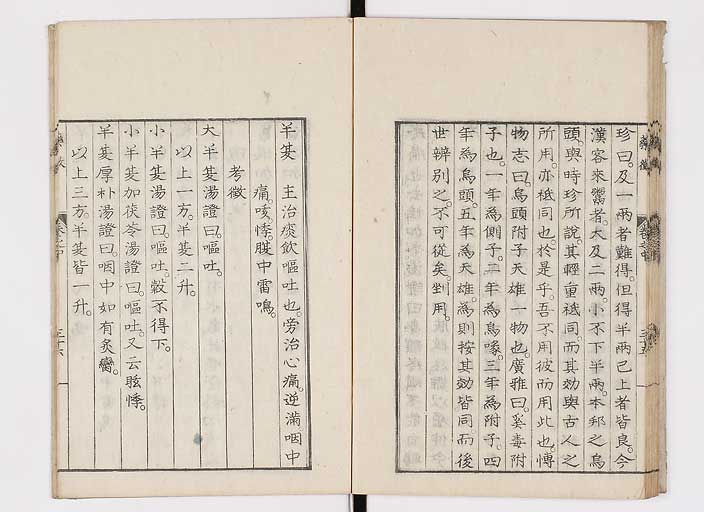 珍曰。及一兩者難得。但得半兩已上者皆良。今
漢客來鬻者。大及二兩。小不下半兩。本邦之烏
頭。與時珍所說。其輕重祗同。而其効與古人之
所用。亦祗同也。於是乎。吾不用彼而用此也。博
物志曰。烏頭附子天雄一物也。廣雅曰。奚毒附
子也。一年為側子。二年為烏喙。三年為附子。四
年為烏頭。五年為天雄。為則按其効皆同。而後
世辨別之。不可從矣。剉用。
半夏 主治痰飲嘔吐也。旁治心痛。逆滿。咽中
痛。咳。悸。腹中雷鳴。
考徵
大半夏湯證曰。嘔吐。
以上一方。半夏二升。
小半夏湯證曰。嘔吐。穀不得下。
小半夏加茯苓湯證曰。嘔吐。又云眩悸。
半夏厚朴湯證曰。咽中如有炙臠。
以上三方。半夏皆一升。
藥徵
卷之中
三十五
三十六